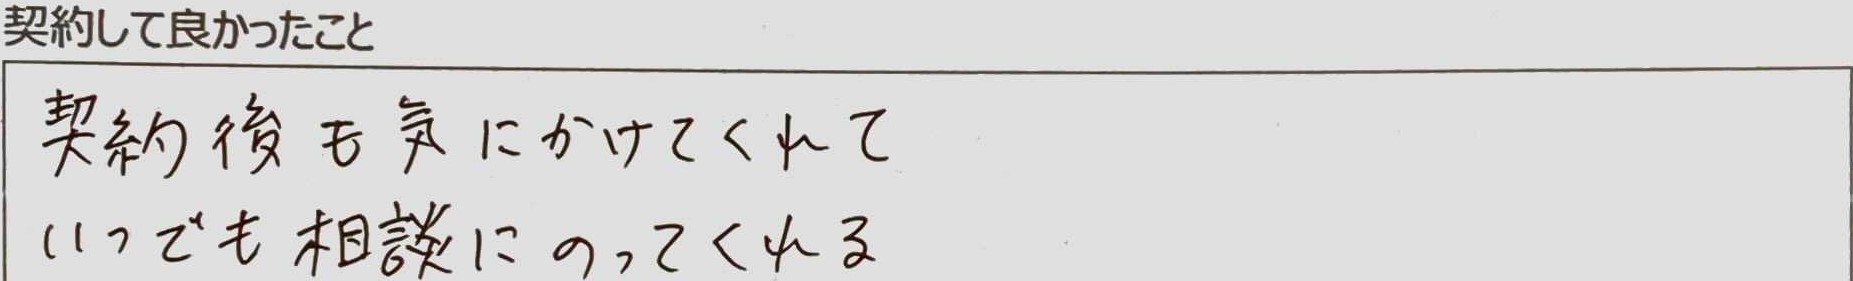 契約して良かったこと
契約後も気にかけてくれて
いつでも相談にのってくれる